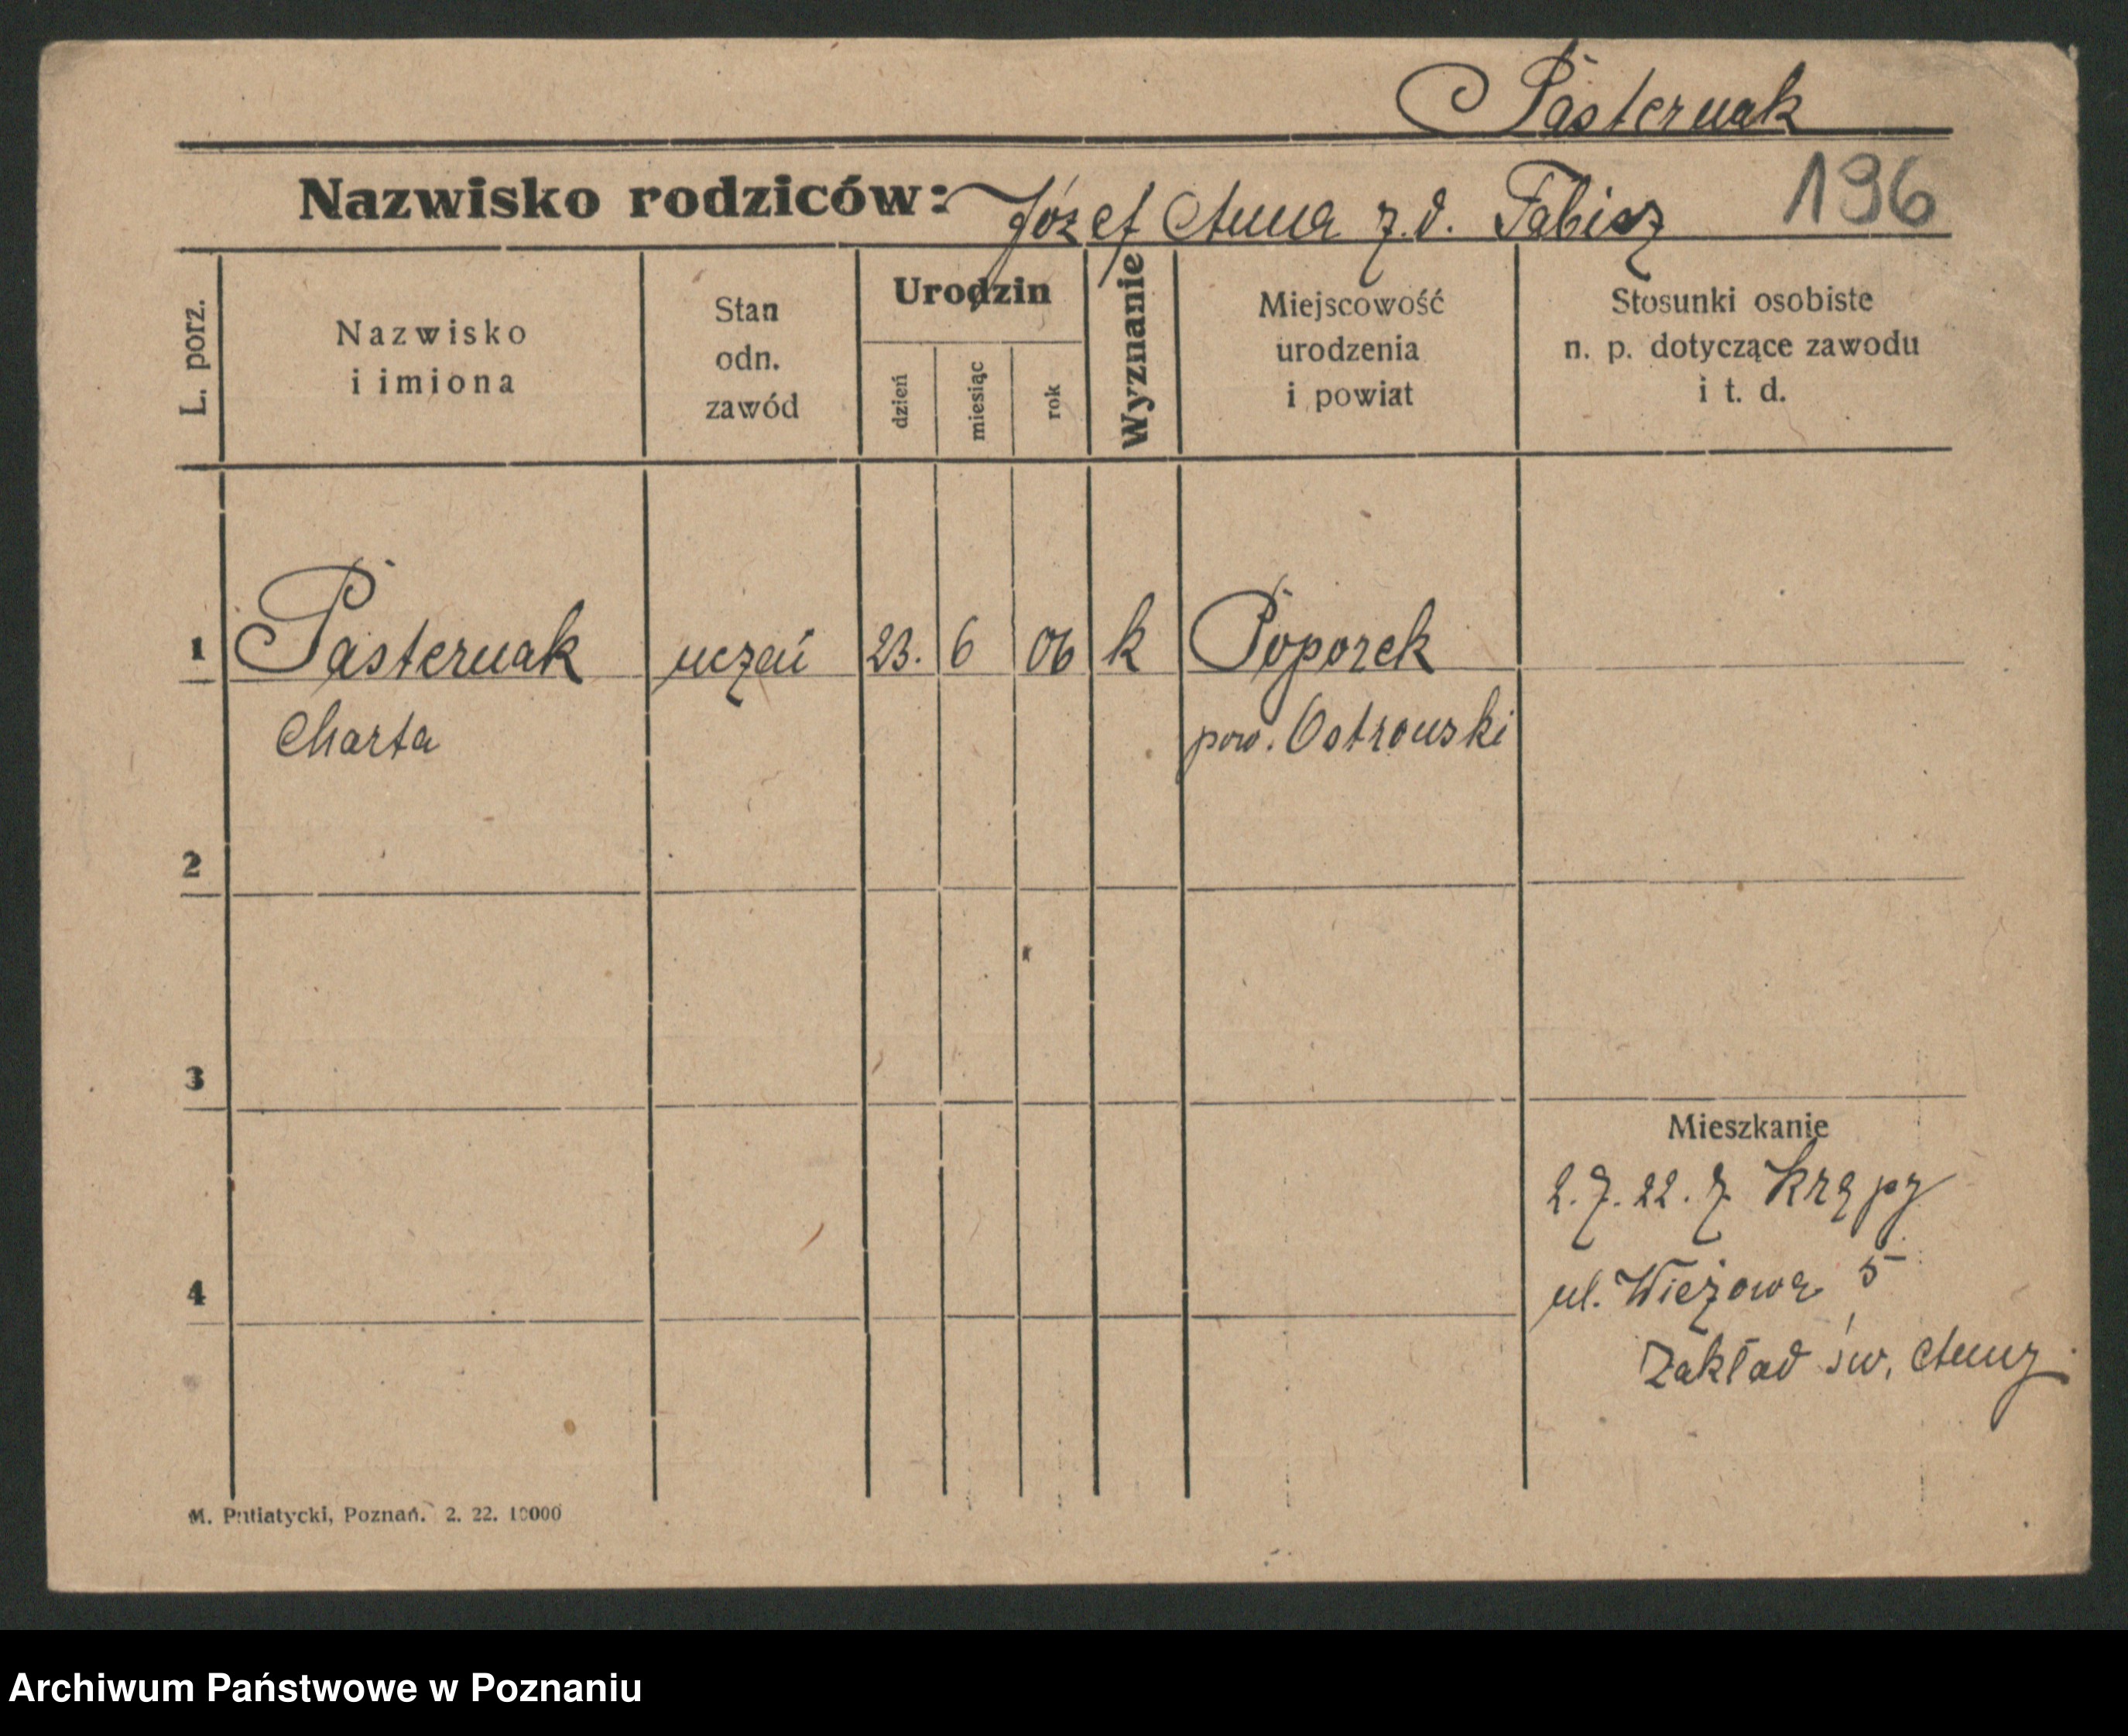 Pasternak
Nazwisko rodziców: Józef Anna z.d. Fabisz 196
L. porz.
Nazwisko
i imiona
Stan
odn.
zawód
Urodzin
dzień
miesiąc
rok
Wyznanie
Miejscowość
urodzenia
i powiat
Stosunki osobiste
n. p. dotyczące zawodu
i t. d.
1 Pasternak uczeń 23. 6 06 k Poporek
Marta pow. Ostrowski
2
3
Mieszkanie
2.7.22. z Krępy
4
ul. Wieżowa 5
Zakład św. Anny
M. Putiatycki, Poznań. 2. 22. 10000
Archiwum Państwowe w Poznaniu